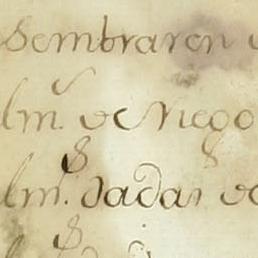 Sembraron
lm. de riego
lm. dadas de